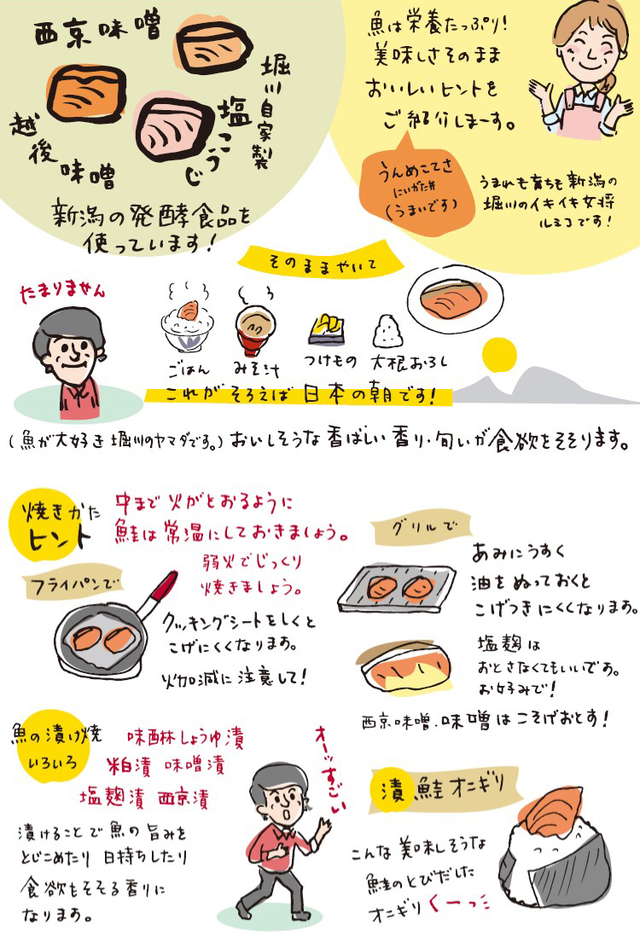 西京味噌
堀川自家製
塩こうじ
越後味噌
新潟の発酵食品を
使っています！
魚は栄養たっぷり！
美味しさそのまま
おいしいヒントを
ご紹介しまーす。
うんめこてさ
にいがた弁
(うまいです)
うまれも育ちも新潟の
堀川のイキイキ女将
ルミコです！
そのままやいて
たまりません
ごはん
みそ汁
つけもの
大根おろし
これがそろえば日本の朝です！
(魚が大好き堀川のヤマダです。)おいしそうな香ばしい香り・匂いが食欲をそそります。
焼きかた
ヒント
中まで火がとおるように
鮭は常温にしておきましょう。
弱火でじっくり
焼きましょう。
フライパンで
クッキングシートをしくと
こげにくくなります。
火加減に注意して！
グリルで
あみにうすく
油をぬっておくと
こげつきにくくなります。
塩麹は
おとさなくてもいいです。
お好みで！
西京味噌・味噌はこそげおとす！
魚の漬け焼
いろいろ
味醂しょうゆ漬
粕漬 味噌漬
塩麹漬 西京漬
漬けることで魚の旨みを
とじこめたり 日持ちしたり
食欲をそそる香りに
なります。
オーッすごい
漬鮭オニギリ
こんな美味しそうな
鮭のとびだした
オニギリくーっ